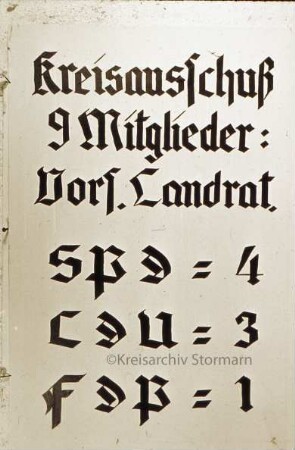 Kreisausſchuß
9 Mitglieder:
Vorſ. Landrat.
SPD = 4
CDU = 3
©Kreisarchiv Stormarn
FDP = 1